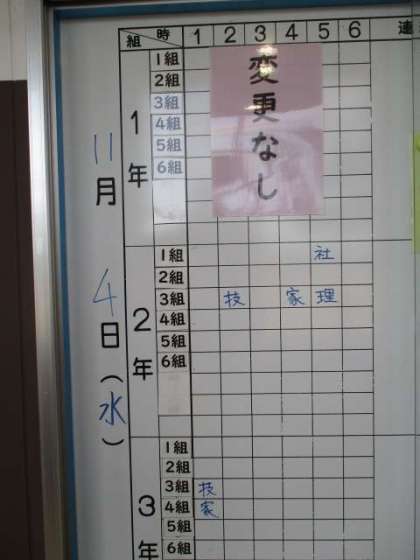 組 時 1 2 3 4 5 6 連
11月4日(水)
1年
1組
2組
3組
4組
5組
6組
変更なし
2年
1組 社
2組
3組 技 家 理
4組
5組
6組
3年
1組
2組
3組 技
4組 家
5組
6組